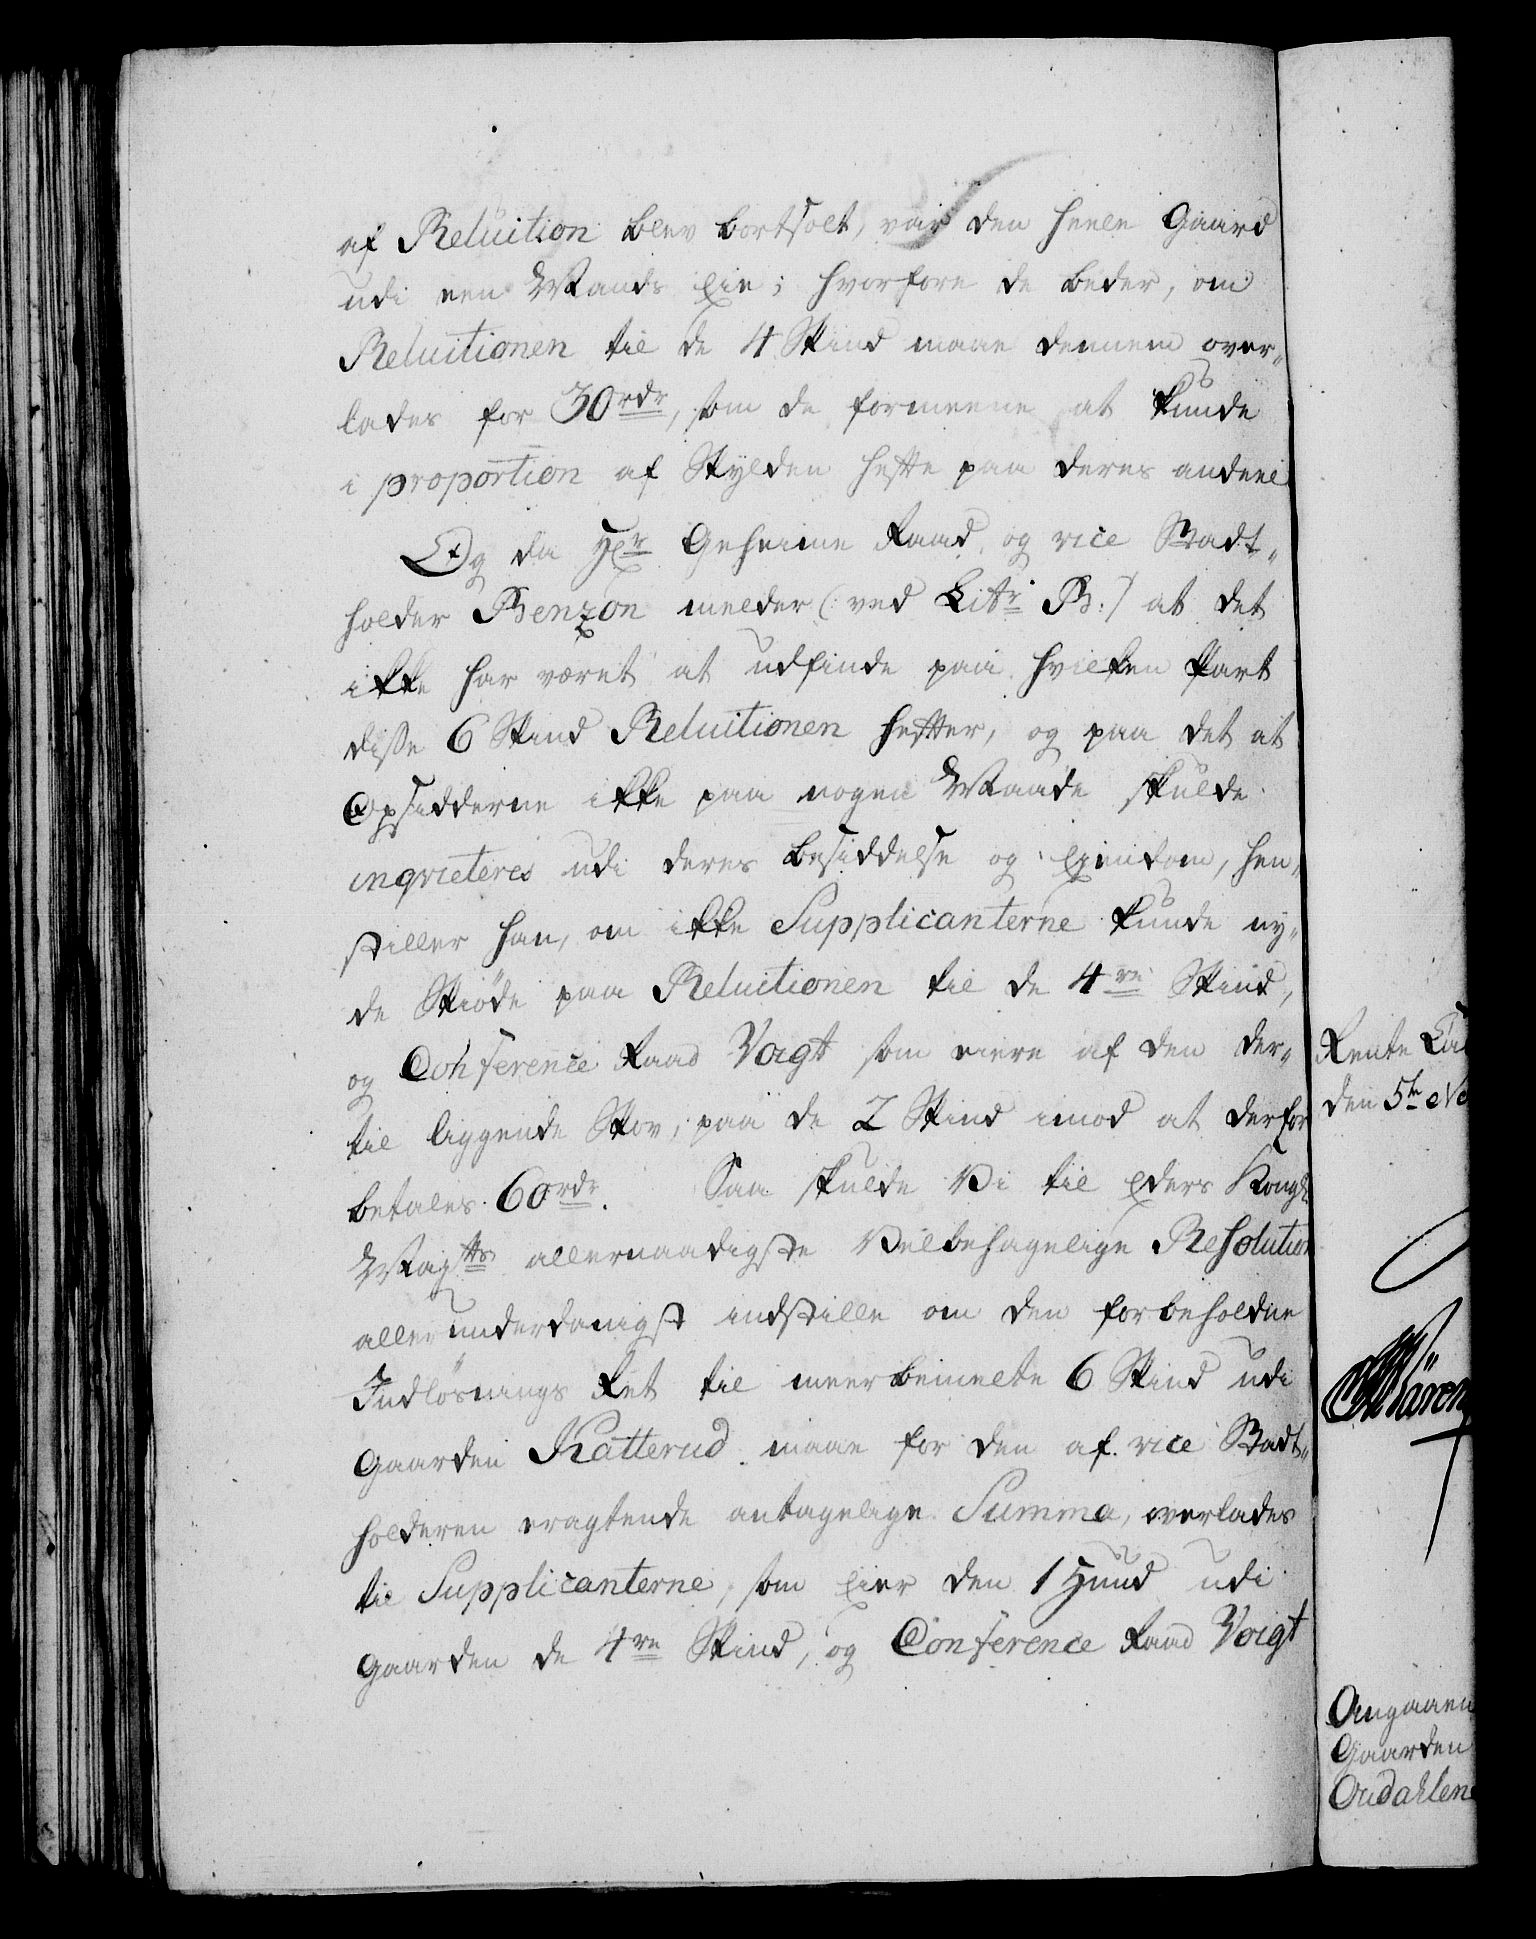 af Reluition blev bortsolt, var den heele Gaard
udi een Mands Eie; hvorfore de beder, om
Reluitionen til de 4 Skind maae dennem over„
lades for 30 rdr, som de formeene at kunde
i proportion af Skylden hefte paa deres andeel
Og da Hr Geheime Raad, og vice Stadt„
holder Benzon melder (: ved Litr B :) at det
ikke har været at udfinde paa hvilken Part
disse 6 Skind Reluitionen hefter, og paa det at
Opsidderne ikke paa nogen Maade skulde
inqvieteres udi deres besiddelse og Eiendom, hen„
stiller han, om ikke Supplicanterne kunde ny„
de Skiøde paa Reluitionen til de 4re Skind,
og Conference Raad Voigt som eiere af den der„
til liggende Skov, paa de 2 Skind imod at derfor
betales 60 rdr. Saa skulde Vi til Eders Kongl.
Mayts allernaadigste Velbehagelige Resolution
allerunderdanigst indstille om den forbeholdne
Indløsnings Ret til meerbemelte 6 Skind udi
Gaarden Katterud maae for den af vice Stadt„
holderen eragtende antagelige Summa, overlades
til Supplicanterne, som Eier den 1 Huud udi
Gaarden de 4re Skind, og Conference Raad Voigt
Rente
den 5te
Angaaen
Gaarden